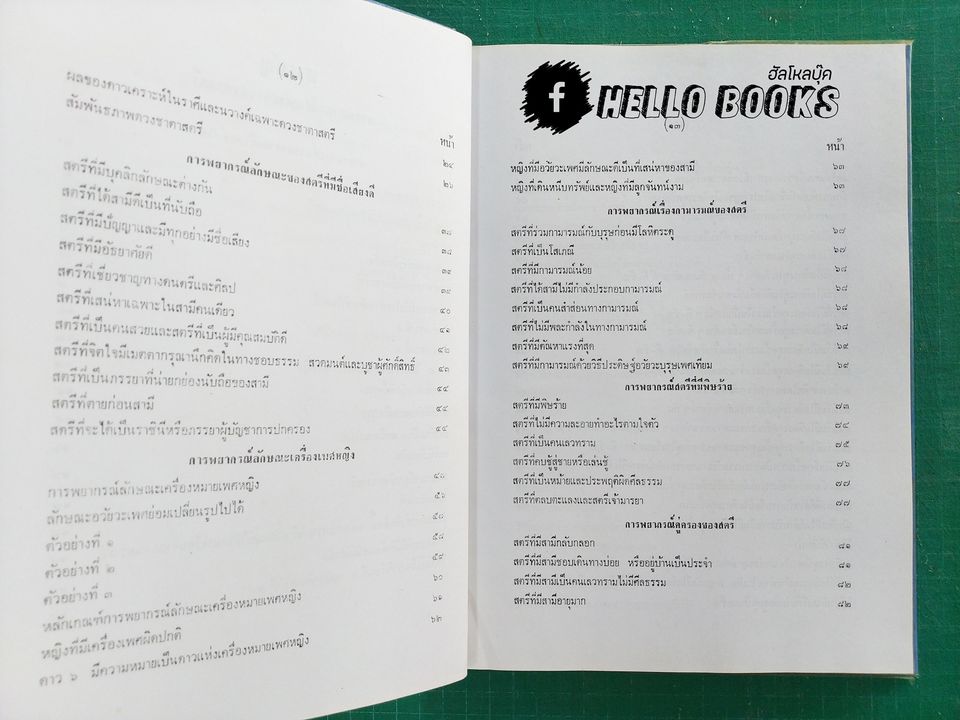 (๑๒)
ผลของดาวเคราะห์ในราศีและนวางค์เฉพาะดวงชาตาสตรี
สัมพันธภาพดวงชาตาสตรี
หน้า
การพยากรณ์ลักษณะของสตรีที่มีชื่อเสียงดี ๒๔
สตรีที่มีบุคลิกลักษณะต่างกัน ๒๖
สตรีที่ได้สามีดีเป็นที่นับถือ
สตรีที่มีปัญญาและมีทุกอย่างมีชื่อเสียง ๓๘
สตรีที่มีอัธยาศัยดี ๓๘
สตรีที่เชี่ยวชาญทางดนตรีและศิลป ๓๙
สตรีที่เสน่หาเฉพาะในสามีคนเดียว ๓๙
สตรีที่เป็นคนสวยและสตรีที่เป็นผู้มีคุณสมบัติดี ๔๐
สตรีที่จิตใจมีเมตตากรุณานึกคิดในทางชอบธรรม สวดมนต์และบูชาผู้ศักดิ์สิทธิ์ ๔๑
สตรีที่เป็นภรรยาที่น่ายกย่องนับถือของสามี ๔๒
สตรีที่ตายก่อนสามี ๔๓
สตรีที่จะได้เป็นราชินีหรือภรรยาผู้บัญชาการปกครอง ๔๔
การพยากรณ์ลักษณะเครื่องเพศหญิง
การพยากรณ์ลักษณะเครื่องหมายเพศหญิง ๔๘
ลักษณะอวัยวะเพศย่อมเปลี่ยนรูปไปได้ ๕๖
ตัวอย่างที่ ๑ ๕๘
ตัวอย่างที่ ๒ ๕๘
ตัวอย่างที่ ๓ ๕๙
หลักเกณฑ์การพยากรณ์ลักษณะเครื่องหมายเพศหญิง ๖๐
หญิงที่มีเครื่องเพศผิดปกติ ๖๑
ดาว ๖ มีความหมายเป็นดาวแห่งเครื่องหมายเพศหญิง ๖๒
ฮัลโหลบุ๊ค
f HELLO BOOKS
(๑๓)
หน้า
หญิงที่มีอวัยวะเพศมีลักษณะดีเป็นที่เสน่หาของสามี ๖๓
หญิงที่เดินหนีบทรัพย์และหญิงที่มีลูกจันทน์งาม ๖๓
การพยากรณ์เรื่องกามารมณ์ของสตรี
สตรีที่ร่วมกามารมณ์กับบุรุษก่อนมีโลหิตระดู ๖๗
สตรีที่เป็นโสเภณี ๖๗
สตรีที่มีกามารมณ์น้อย ๖๘
สตรีที่ได้สามีไม่มีกำลังประกอบกามารมณ์ ๖๘
สตรีที่เป็นคนสำส่อนทางกามารมณ์ ๖๘
สตรีที่ไม่มีพละกำลังในทางกามารมณ์ ๖๘
สตรีที่มีตัณหาแรงที่สุด ๖๙
สตรีที่มีกามารมณ์ด้วยวิธีประดิษฐ์อวัยวะบุรุษเพศเทียม ๖๙
การพยากรณ์สตรีที่มีพิษร้าย
สตรีที่มีพิษร้าย ๗๓
สตรีที่ไม่มีความละอายทำอะไรตามใจตัว ๗๔
สตรีที่เป็นคนเลวทราม ๗๕
สตรีที่คบชู้สู่ชายหรือเล่นชู้ ๗๖
สตรีที่เป็นหม้ายและประพฤติผิดศีลธรรม ๗๗
สตรีที่ตลบตะแลงและสตรีเจ้ามารยา ๗๗
การพยากรณ์คู่ครองของสตรี
สตรีที่มีสามีกลับกลอก ๘๑
สตรีที่มีสามีชอบเดินทางบ่อย หรืออยู่บ้านเป็นประจำ ๘๑
สตรีที่มีสามีเป็นคนเลวทรามไม่มีศีลธรรม ๘๒
สตรีที่มีสามีอายุมาก ๘๒